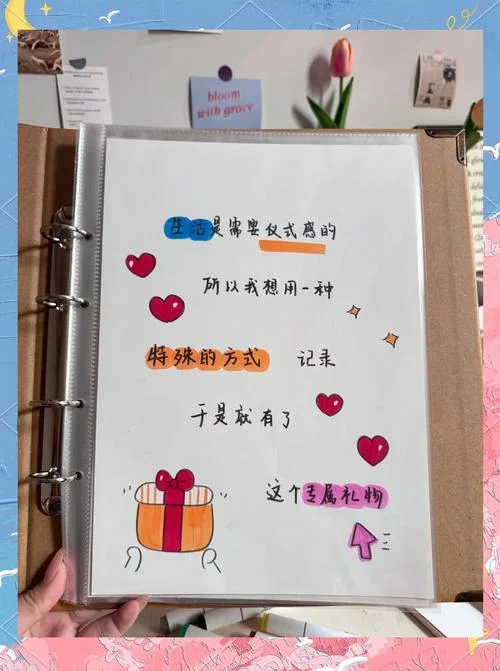 bloom
with grace
生活是需要仪式感的
所以我想用一种
特殊的方式 记录
于是就有了
这个专属礼物